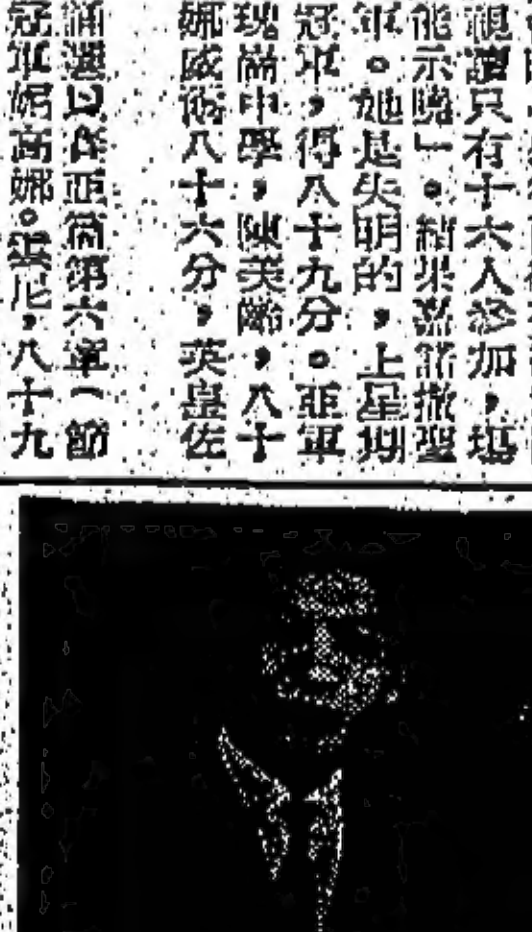 視讀只有十六人參加,
能示曉」。結果嘉諾撒聖
軍。她是失明的,上星期
冠軍,得八十九分。亞軍
瑰崗中學,陳美齡,八十
娜威 八十六分,英皇佐
誦選以賽亞 第六章(節
冠軍妮高娜。 尼,八十九